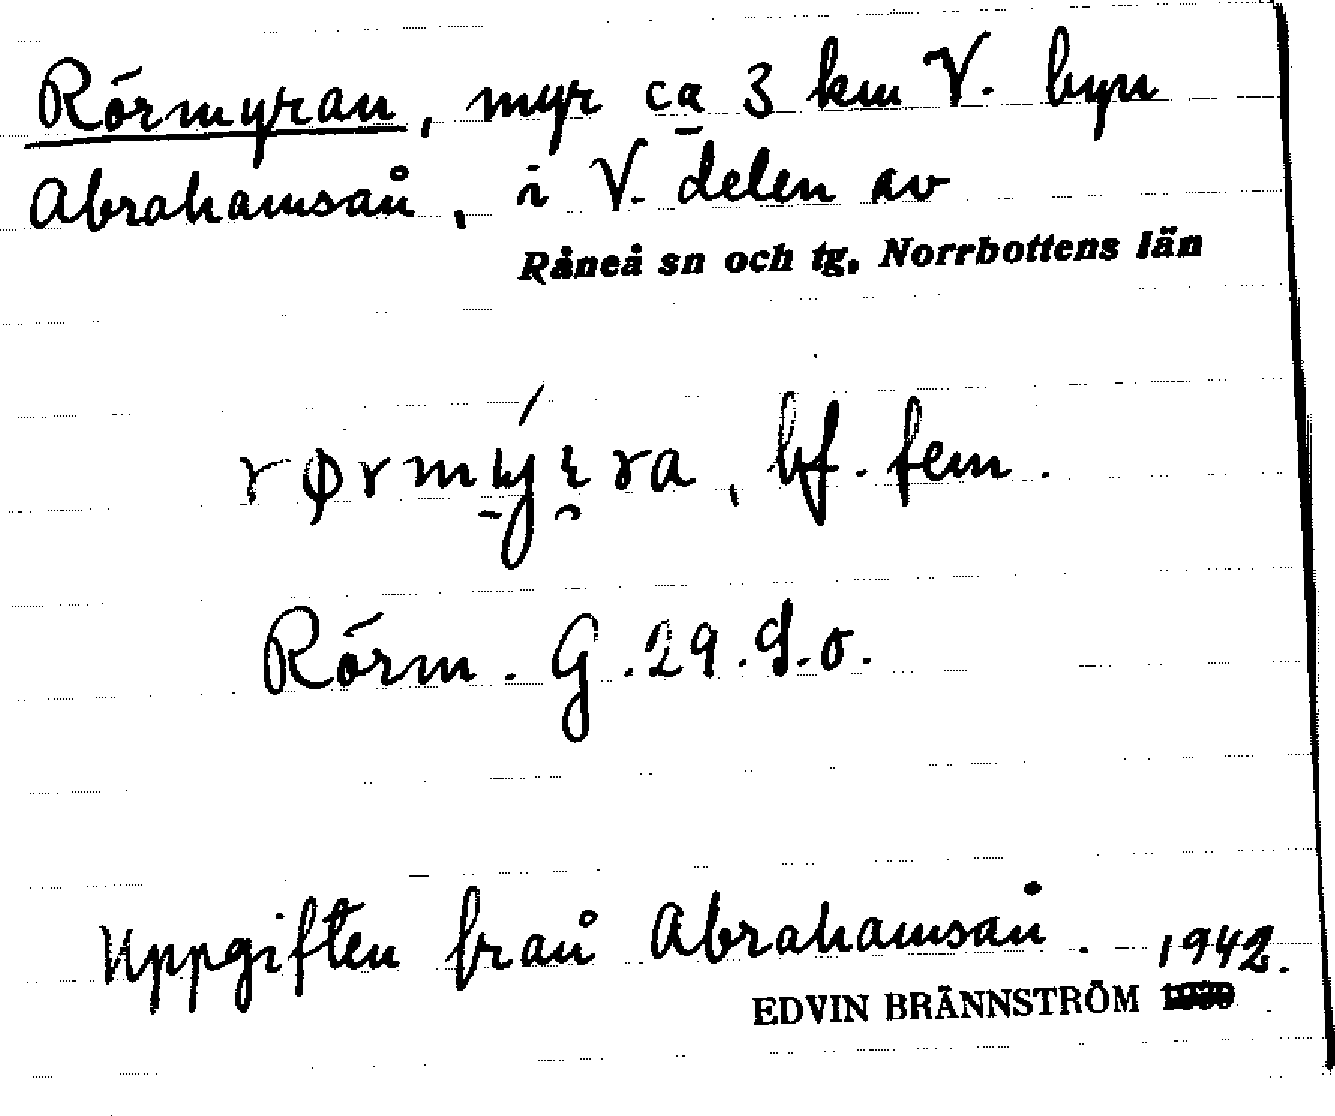 Rörmyran, myr ca 3 km V. byn
Abrahamsån, i V. delen av
Råneå sn och tg, Norrbottens län
bf. fem.
Rörm. G. 29. d.o.
Uppgiften från Abrahamsån. 1942.
EDVIN BRÄNNSTRÖM